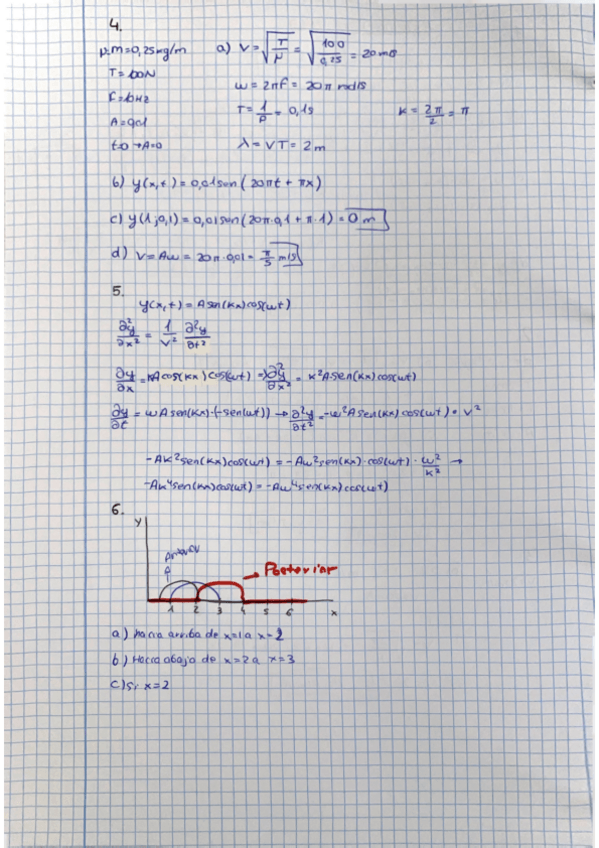 4.
μ=m=0,25kg/m a) V = √(T/μ) = √(100/0,25) = 20 m/s
T=100N
ω = 2πf = 20π rad/s
f=10Hz T = 1/f = 0,1s K = 2π/2 = π
A=0,01
t=0 → A=0 λ = VT = 2m
b) y(x,t) = 0,01sen(20πt + πx)
c) y(1,0,1) = 0,01sen(20π·0,1 + π·1) = 0 m
d) V = Aω = 20π·0,01 = π/5 m/s
5.
y(x,t) = Asen(kx)cos(ωt)
∂²y/∂x² = 1/V² ∂²y/∂t²
∂y/∂x = KAcos(kx)cos(ωt) → ∂²y/∂x² = K²Asen(kx)cos(ωt)
∂y/∂t = ωAsen(kx)·(-sen(ωt)) → ∂²y/∂t² = -ω²Asen(kx)cos(ωt) · V²
-AK²sen(kx)cos(ωt) = -Aω²sen(kx)·cos(ωt) · ω²/K² →
-AK⁴sen(kx)cos(ωt) = -Aω⁴sen(kx)cos(ωt)
6.
y
Anterior
Posterior
1 2 3 4 5 6 x
a) Hacia arriba de x=1 a x=2
b) Hacia abajo de x=2 a x=3
c) Si x=2